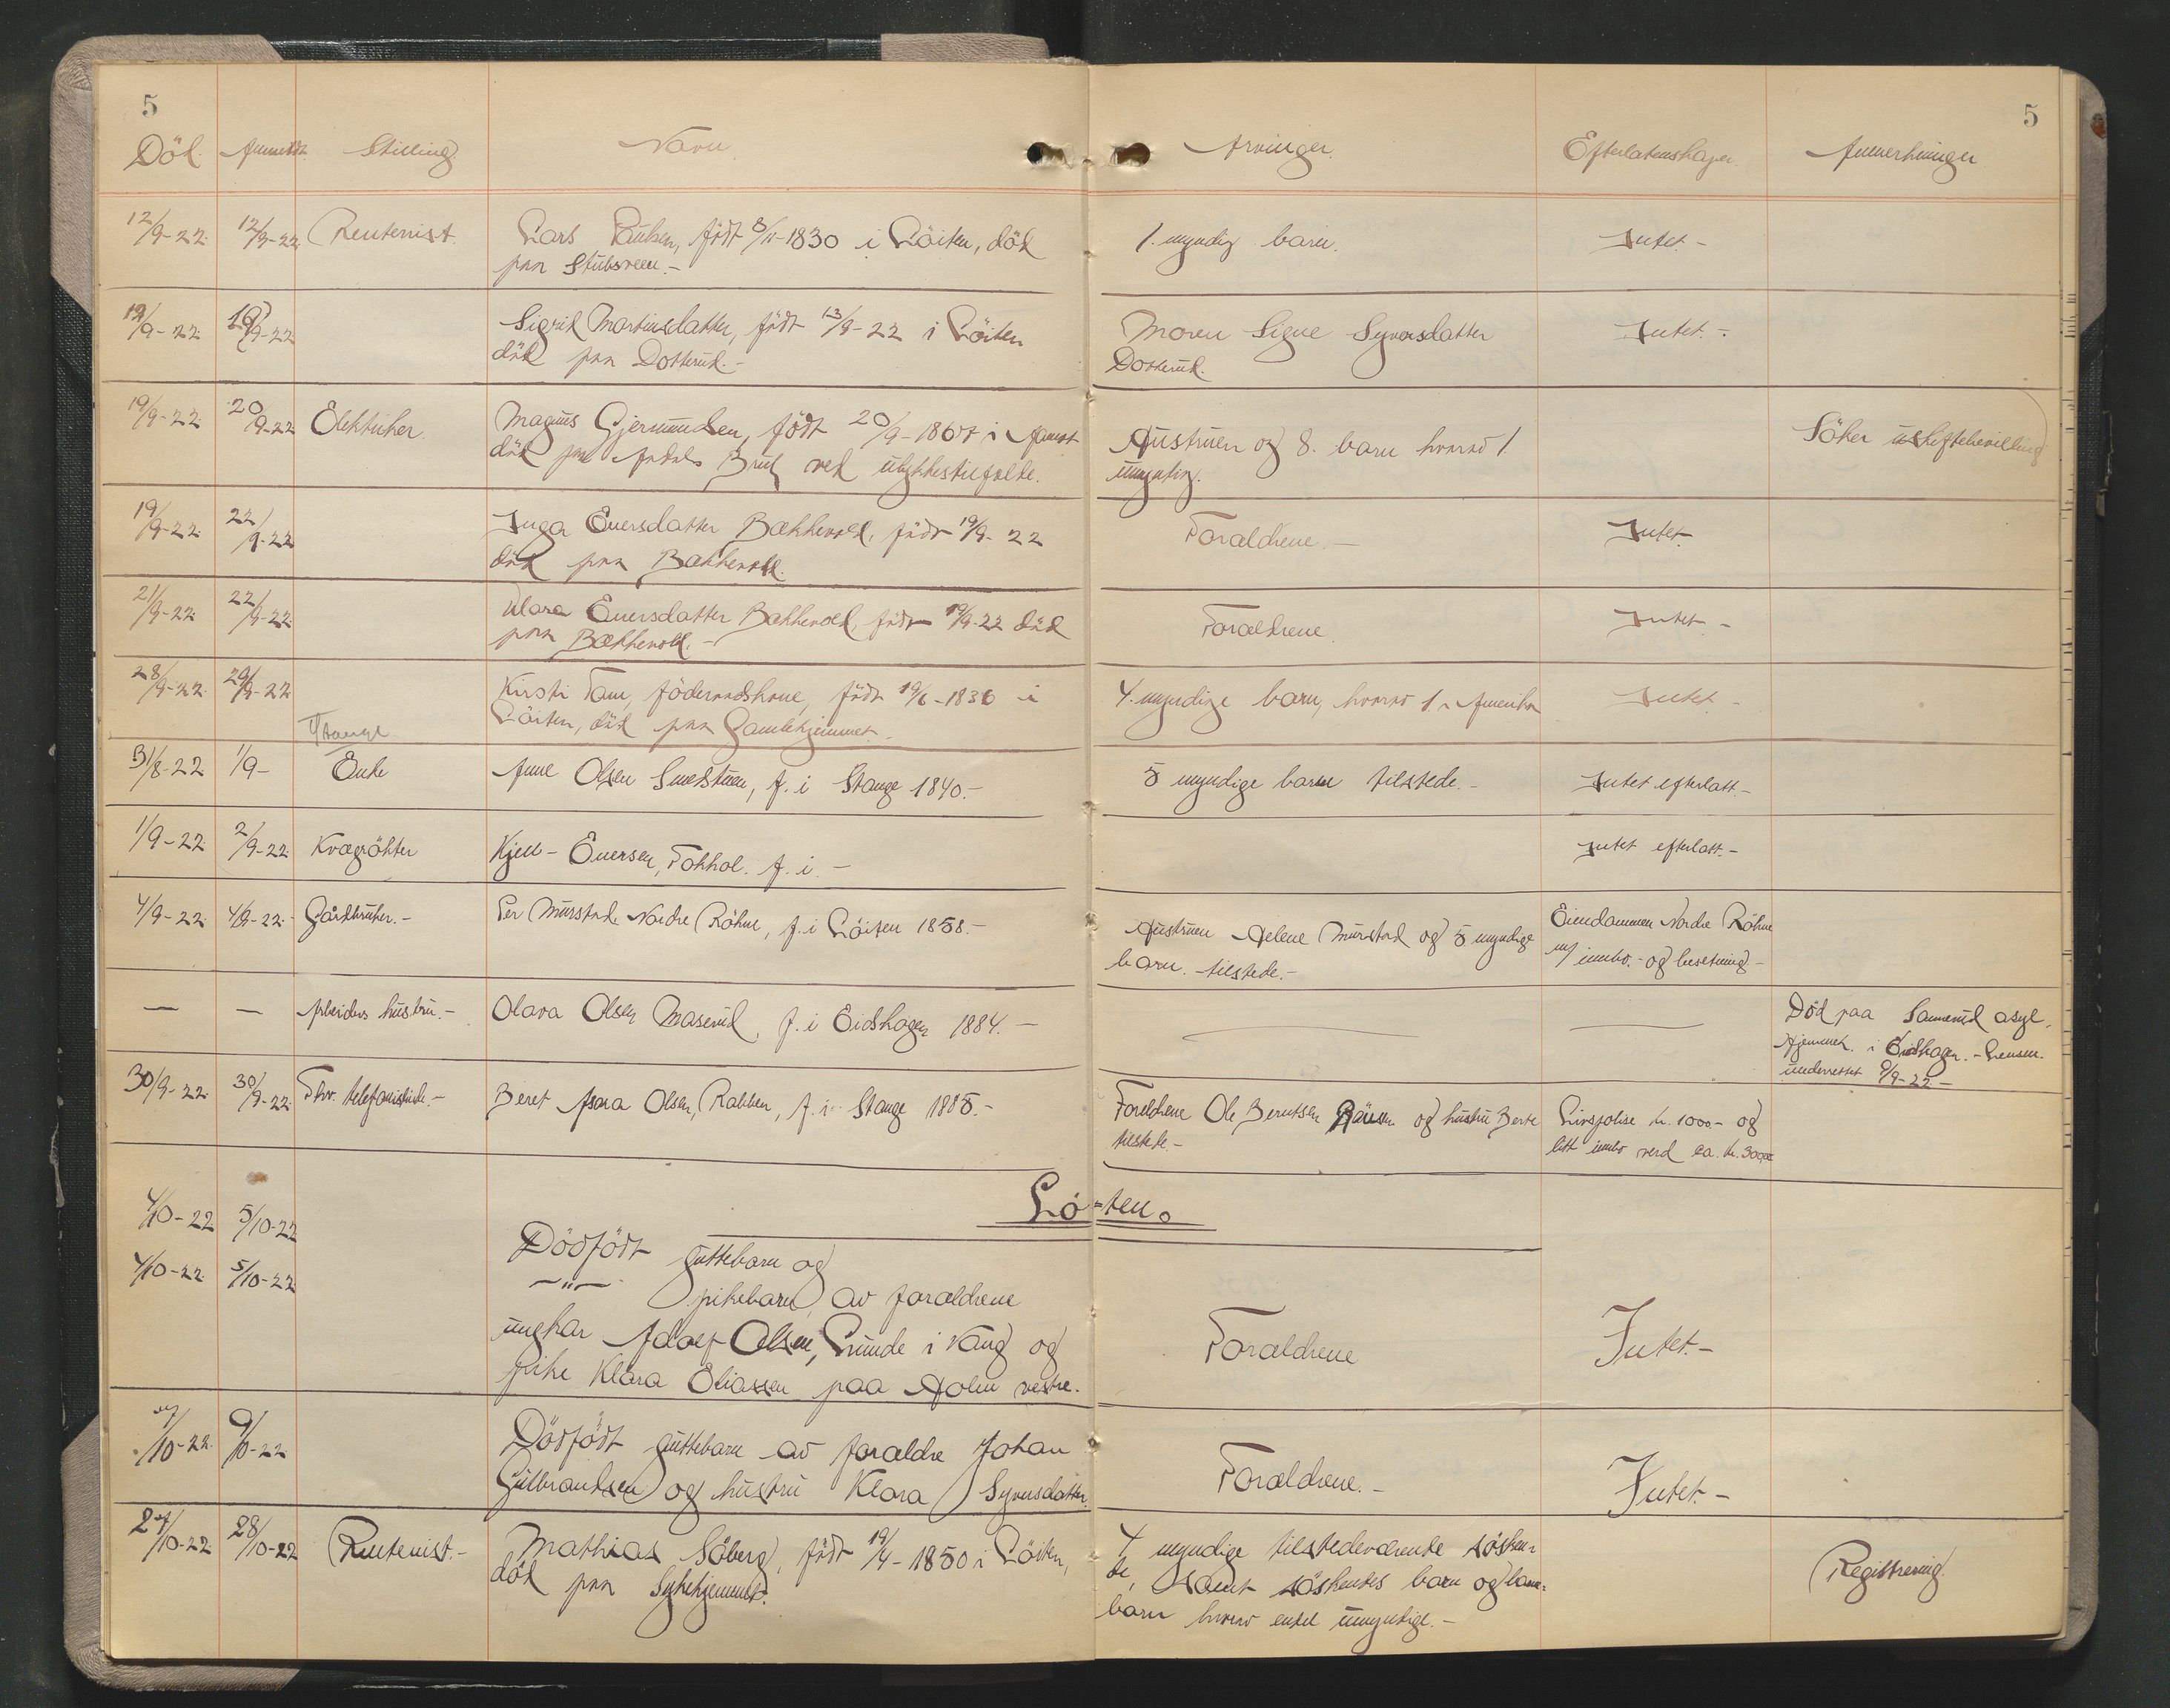 5
5
Död. Anmeldt Stilling Navn. Arvinger. Efterladenskaper Anmerkninger
12/9-22. 12/9-22 Rentenist. Lars Paulsen, födt 8/11-1830 i Löiten, död 1. myndig barn. Intet.-
paa Stubsveen.-
19/9-22. 19/9-22 Sigrid Martinsdatter, födt 13/9-22 i Löiten Moren Signe Syversdatter Intet.-
död paa Dotterud.- Dotterud.
19/9-22 20/9-22 Elektriker. Magnus Gjermundsen, födt 20/9-1867 i Hustruen og 8. barn hvorav 1. Söker uskiftebevilling
död paa Brug ved ulykkestilfelde. umyndig.
19/9-22. 22/9-22 Inga Enersdatter Bækkevold, födt 19/9-22 Foraldrene.- Intet.
död paa Bækkevold.
21/9-22. 22/9-22. Klara Enersdatter Bækkevold, födt 19/9-22 död Foraldrene. Intet.-
paa Bækkevold.-
28/9-22. 29/9-22 Kirsti Tam, föderaadskone, födt 19/6-1836 i 4. myndige barn, hvorav 1 i Amerika Intet.-
Löiten, död paa Gamlehjemmet.-
Stange
31/8-22 1/9- Enke Anne Olsen Smedstuen, f. i Stange 1840.- 5 myndige barn tilstede.- Intet efterlatt.-
1/9-22 2/9-22 Kvægrökter Kjell- Enersen, Tokhol. f. i.- Intet efterlatt.-
4/9-22. 4/9-22.- Gårdbruker.- Per Murstad Nordre Röhne, f. i Löiten 1858.- Hustruen Helene Murstad og 5 myndige Eiendommen Nordre Röhne
barn. tilstede.- m/ innbo.- og besetning-
— — Arbeiders hustru.- Olava Olsen Maserud, f. i Eidskogen 1884.- Död paa Sannerud asyl,
hjemmeh. i Eidskogen.- Lensm.
underrettet 9/9-22-
30/9-22. 30/9-22. Fhv. telefonistinde.- Beret Asora Olsen, Rabben, f. i Stange 1885.- Foreldrene Ole Berntsen og hustru Berte Livspolise kr. 1000.- og
tilstede.- litt innbo verd ca. kr. 300,00
Lö-ten.
4/10-22 5/10-22 Dödfödt guttebarn og
4/10-22. 5/10-22 —"— pikebarn, av foraldrene
ungkar Adolf Olsen, Lunde i Vang og Foraldrene Intet.-
pike Klara Eliassen paa Holm vestre.
7/10-22. 9/10-22 Dödfödt guttebarn av foraldre Johan Foraldrene.- Intet.-
Gulbrandsen og hustru Klara Syversdatter.
27/10-22 28/10-22 Rentenist.- Mathias Söberg, födt 19/4-1850 i Löiten, 4 myndige tilstedeværende sösken- Registrering.
död paa Sykehjemmet. de, samt söskendes barn og barne-
barn hvorav endel umyndige.-